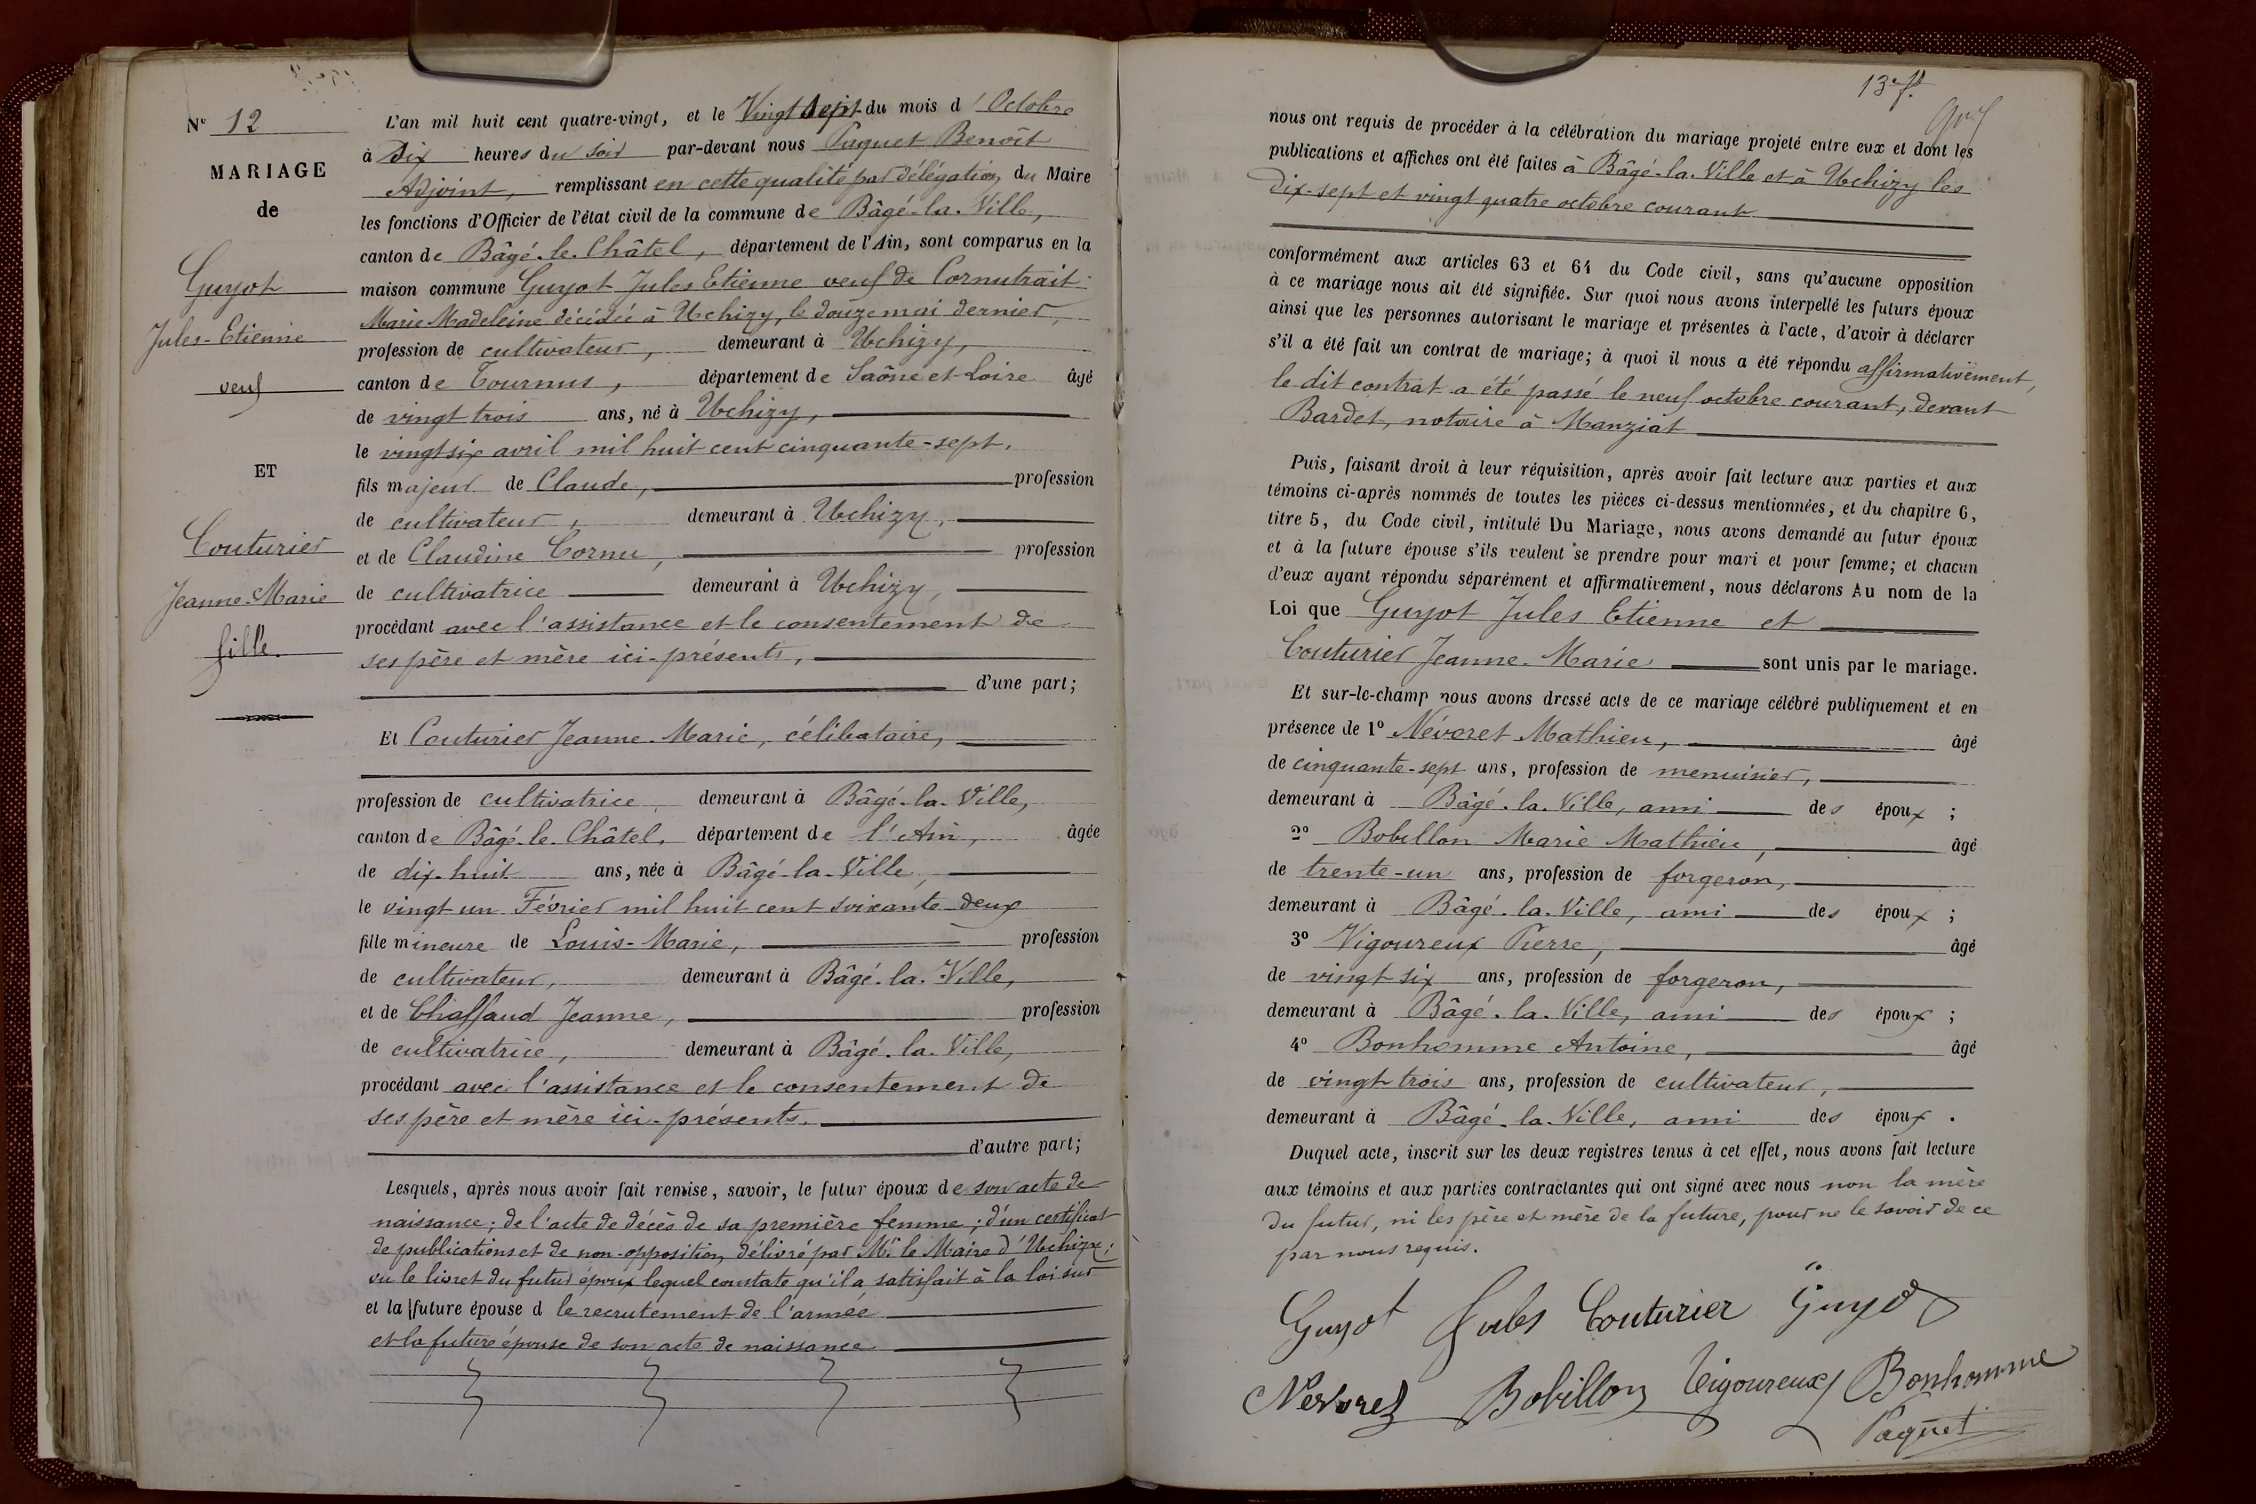 N° 12
MARIAGE
de
Guyot
Jules-Etienne
veuf
ET
Couturier
Jeanne-Marie
fille
L'an mil huit cent quatre-vingt, et le Vingt sept du mois d'Octobre
à Six heures du soir par-devant nous Paquet Benoît
Adjoint, remplissant en cette qualité par délégation du Maire
les fonctions d'Officier de l'état civil de la commune de Bâgé-la-Ville,
canton de Bâgé-le-Châtel, département de l'Ain, sont comparus en la
maison commune Guyot Jules Etienne veuf de Cornutrait
Marie Madeleine décédée à Uchizy, le douze mai dernier,
profession de cultivateur, demeurant à Uchizy,
canton de Tournus, département de Saône et Loire âgé
de vingt trois ans, né à Uchizy,
le vingt six avril mil huit cent cinquante-sept,
fils majeur de Claude, profession
de cultivateur, demeurant à Uchizy,
et de Claudine Cornu, profession
de cultivatrice demeurant à Uchizy,
procédant avec l'assistance et le consentement de
ses père et mère ici-présents,
d'une part;
Et Couturier Jeanne-Marie, célibataire,
profession de cultivatrice, demeurant à Bâgé-la-Ville,
canton de Bâgé-le-Châtel, département de l'Ain, âgée
de dix-huit ans, née à Bâgé-la-Ville,
le vingt un Février mil huit cent soixante-deux
fille mineure de Louis-Marie, profession
de cultivateur, demeurant à Bâgé-la-Ville,
et de Chaffaud Jeanne, profession
de cultivatrice, demeurant à Bâgé-la-Ville,
procédant avec l'assistance et le consentement de
ses père et mère ici-présents.
d'autre part;
Lesquels, après nous avoir fait remise, savoir, le futur époux de son acte de
naissance; de l'acte de décès de sa première femme; d'un certificat
de publications et de non-opposition, délivré par Mr le Maire d'Uchizy;
vu le livret du futur époux lequel constate qu'il a satisfait à la loi sur
et la future épouse d le recrutement de l'armée
et la future épouse de son acte de naissance
13e ft
nous ont requis de procéder à la célébration du mariage projeté entre eux et dont les
publications et affiches ont été faites à Bâgé-la-Ville et à Uchizy les
dix-sept et vingt quatre octobre courant
conformément aux articles 63 et 64 du Code civil, sans qu'aucune opposition
à ce mariage nous ait été signifiée. Sur quoi nous avons interpellé les futurs époux
ainsi que les personnes autorisant le mariage et présentes à l'acte, d'avoir à déclarer
s'il a été fait un contrat de mariage; à quoi il nous a été répondu affirmativement,
le dit contrat a été passé le neuf octobre courant, devant
Bardet, notaire à Manziat
Puis, faisant droit à leur réquisition, après avoir fait lecture aux parties et aux
témoins ci-après nommés de toutes les pièces ci-dessus mentionnées, et du chapitre 6,
titre 5, du Code civil, intitulé Du Mariage, nous avons demandé au futur époux
et à la future épouse s'ils veulent se prendre pour mari et pour femme; et chacun
d'eux ayant répondu séparément et affirmativement, nous déclarons Au nom de la
Loi que Guyot Jules Etienne et
Couturier Jeanne-Marie sont unis par le mariage.
Et sur-le-champ nous avons dressé acte de ce mariage célébré publiquement et en
présence de 1° Névoret Mathieu, âgé
de cinquante-sept ans, profession de menuisier,
demeurant à Bâgé-la-Ville, ami des époux ;
2° Bobillon Marie Mathieu, âgé
de trente-un ans, profession de forgeron,
demeurant à Bâgé-la-Ville, ami des époux ;
3° Vigoureux Pierre, âgé
de vingt six ans, profession de forgeron,
demeurant à Bâgé-la-Ville, ami des époux ;
4° Bonhomme Antoine, âgé
de vingt trois ans, profession de cultivateur,
demeurant à Bâgé-la-Ville, ami des époux .
Duquel acte, inscrit sur les deux registres tenus à cet effet, nous avons fait lecture
aux témoins et aux parties contractantes qui ont signé avec nous non la mère
du futur, ni les père et mère de la future, pour ne le savoir de ce
par nous requis.
Guyot Jules Couturier Guyot
Nevoret Bobillon Vigoureux Bonhomme
Paquet